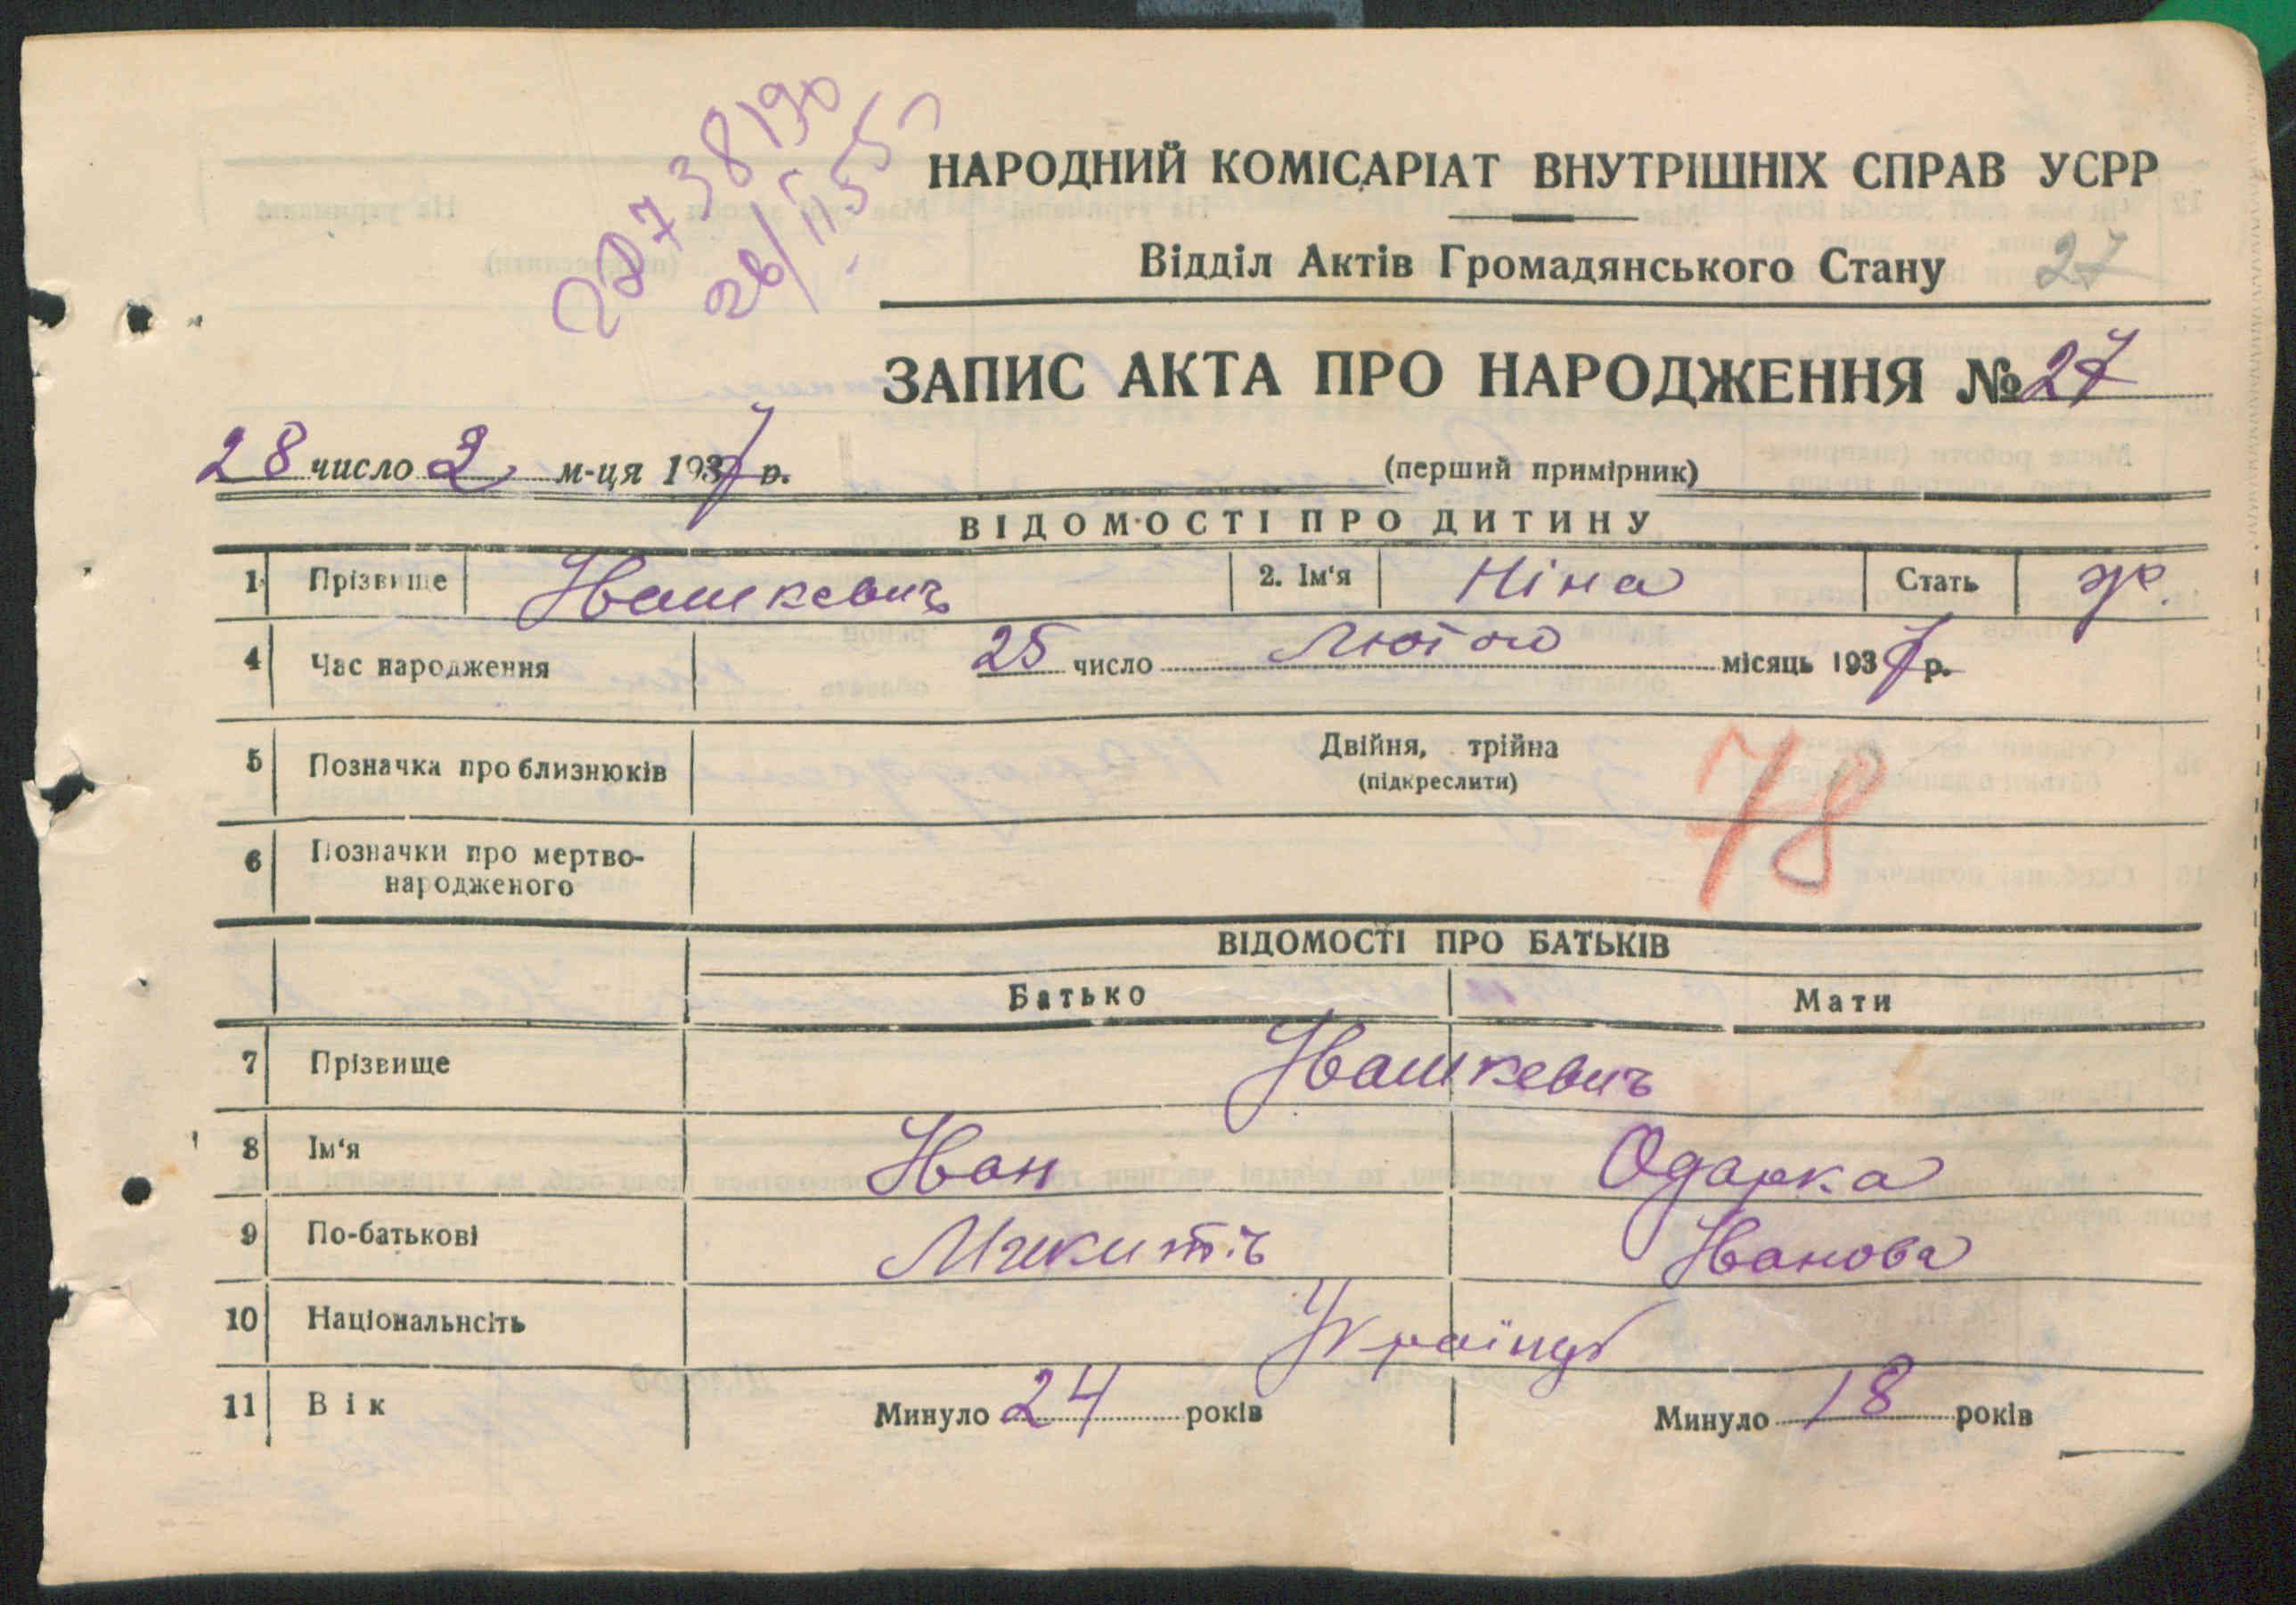 28738190
26/II 55
НАРОДНИЙ КОМІСАРІАТ ВНУТРІШНІХ СПРАВ УСРР
Відділ Актів Громадянського Стану 27
ЗАПИС АКТА ПРО НАРОДЖЕННЯ № 27
28 число 2 м-ця 1937 р.
(перший примірник)
ВІДОМОСТІ ПРО ДИТИНУ
1 Прізвище Ивашкевич 2. Ім'я Ніна Стать ж.
4 Час народження 25 число Лютого місяць 1937 р.
5 Позначка про близнюків Двійня, трійна
(підкреслити)
78
6 Позначки про мертво-
народженого
ВІДОМОСТІ ПРО БАТЬКІВ
Батько Мати
7 Прізвище Ивашкевич
8 Ім'я Иван Одарка
9 По-батькові Микитів Иванова
10 Національнсіть Українці
11 Вік Минуло 24 років Минуло 18 років